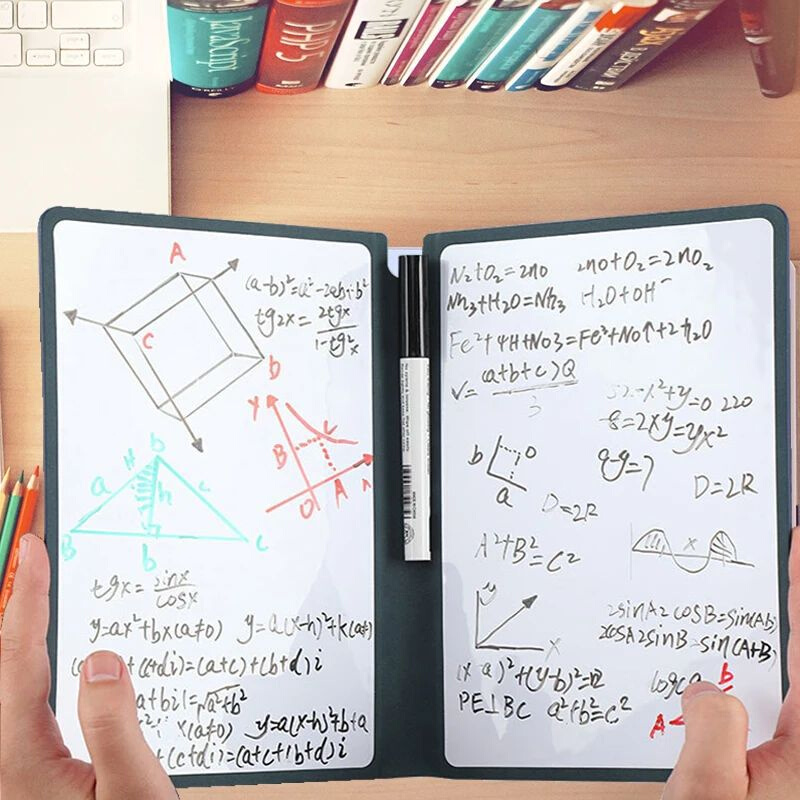 JavaScript
PHP 5
O'REILLY
A
C
b
(a-b)²=a²-2ab+b²
tg2x= 2tgx
1-tg²x
Y
B
C
O
A
b
H
a
h
c
B
b
C
tgx= sinx
cosx
y=ax²+bx(a≠0) y=a(x-h)²+k(a≠)
+(c+di)=(a+c)+(b+d)i
a+bi|=√a²+b²
x(a≠0) y=a(x-h)²+b+a
+(c+di)=(a+c+(b+d)i
N₂+O₂=2no 2no+O₂=2nO₂
Nh₃+H₂O=Nh₃ H₂O+OH⁻
Fe²+4H+No3=Fe²+No↑+2h₂O
V= (a+b+c)Q
3
-x²+y=0 220
-8=2xy=yx²
b
O
a
q-y=7
D=2R
D=2R
A²+B²=C²
x
y
x
2sinA2cosB=sin(Ab)
2cosA2sinB=sin(A+B)
(x-a)²+(y-b)²=
PE⊥BC a²+b²=c²
logca
b
A